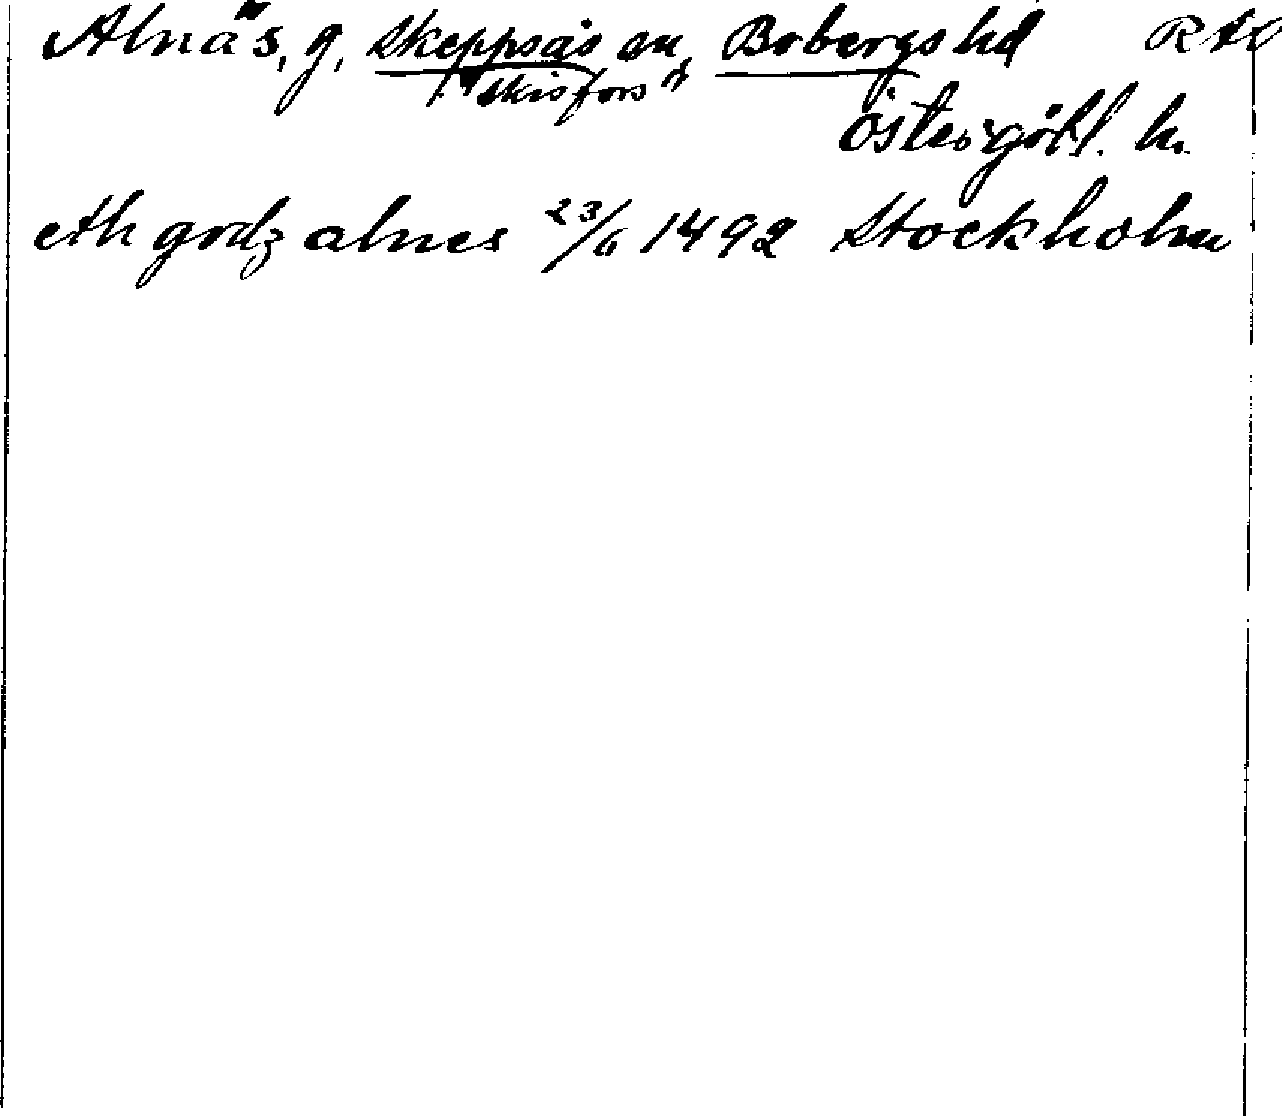 Alnäs, g, Skeppsås sn, Bobergs hd
"Skisfors"
Östergötl. l.
eth godz alnes 23/6 1492 Stockholm